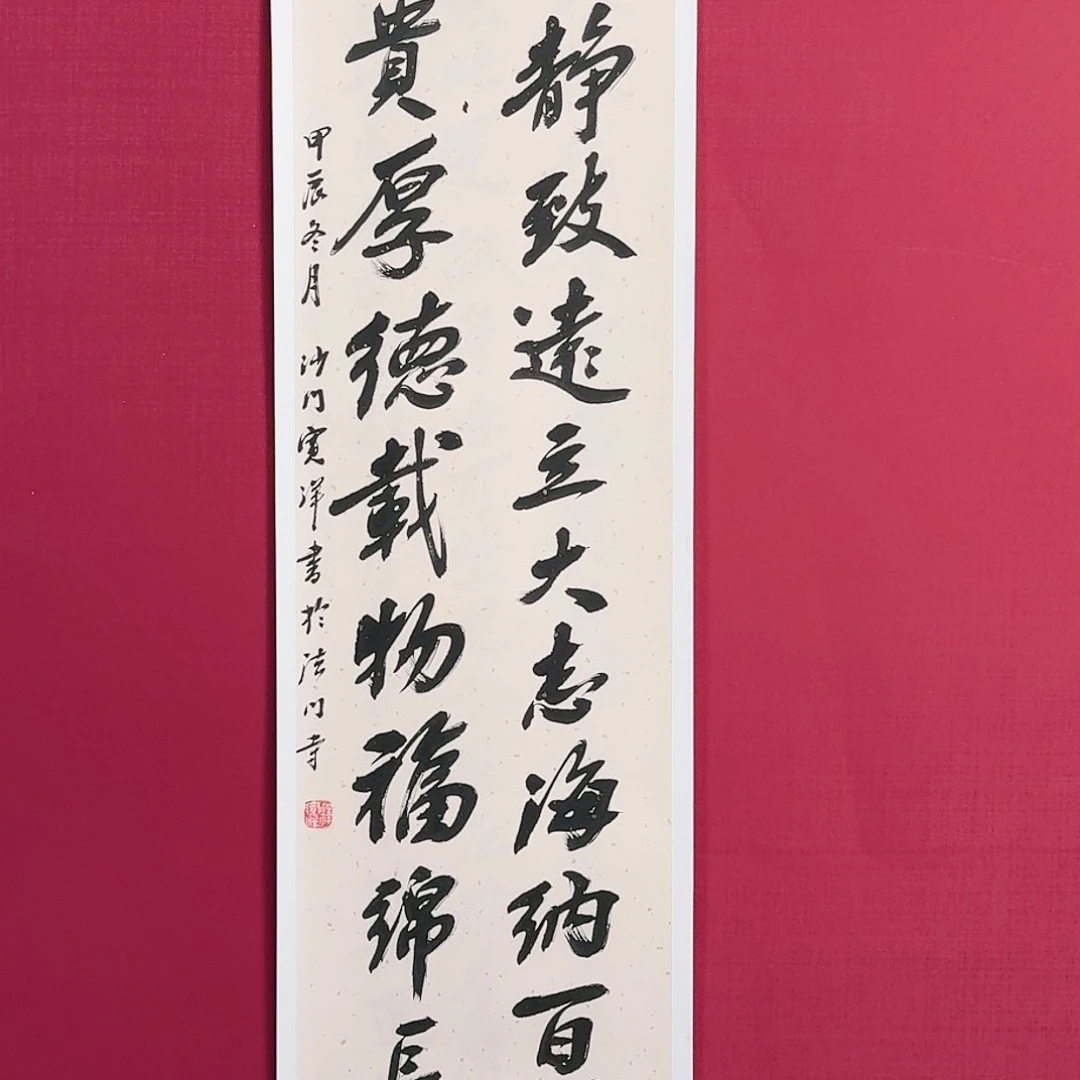 静致遠立大志海纳百
貴厚德載物福綿長
甲辰冬月 沙门寛洋書於法门寺